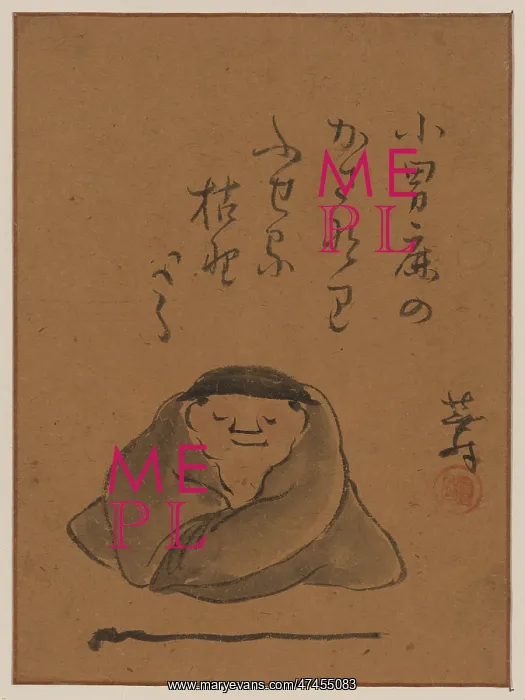 小男鹿の
かさなり
ふせる
枯野
かな
ME
PL
ME
PL
www.maryevans.com/47455083